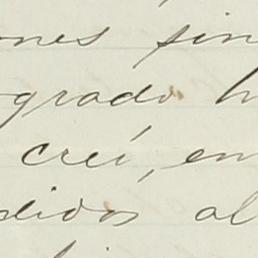 ones sin
grado h
creí, en
didos al